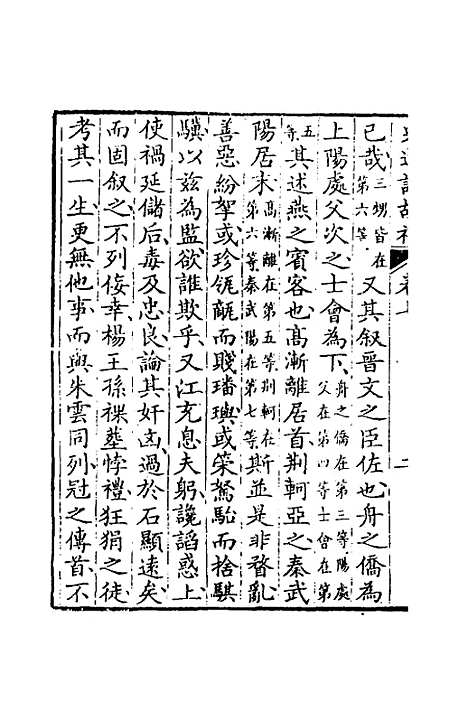 已哉三甥皆在第六等又其叙晉文之臣佐也舟之僑為
上陽處父次之士會為下舟之僑在第三等陽處父在第四等士會在第
五等其述燕之賓客也高漸離居首荆軻亞之秦武
陽居末高漸離在第五等荆軻在第六等秦武陽在第七等斯並是非瞀亂
善惡紛挐或珍瓴甋而賤璠璵或策駑駘而捨騏
驥以兹為監欲誰欺乎又江充息夫躬讒謟惑上
使禍延儲后毒及忠良論其奸凶過於石顯遠矣
而固叙之不列佞幸楊王孫裸塟悖禮狂狷之徒
考其一生更無他事而與朱雲同列冠之傳首不